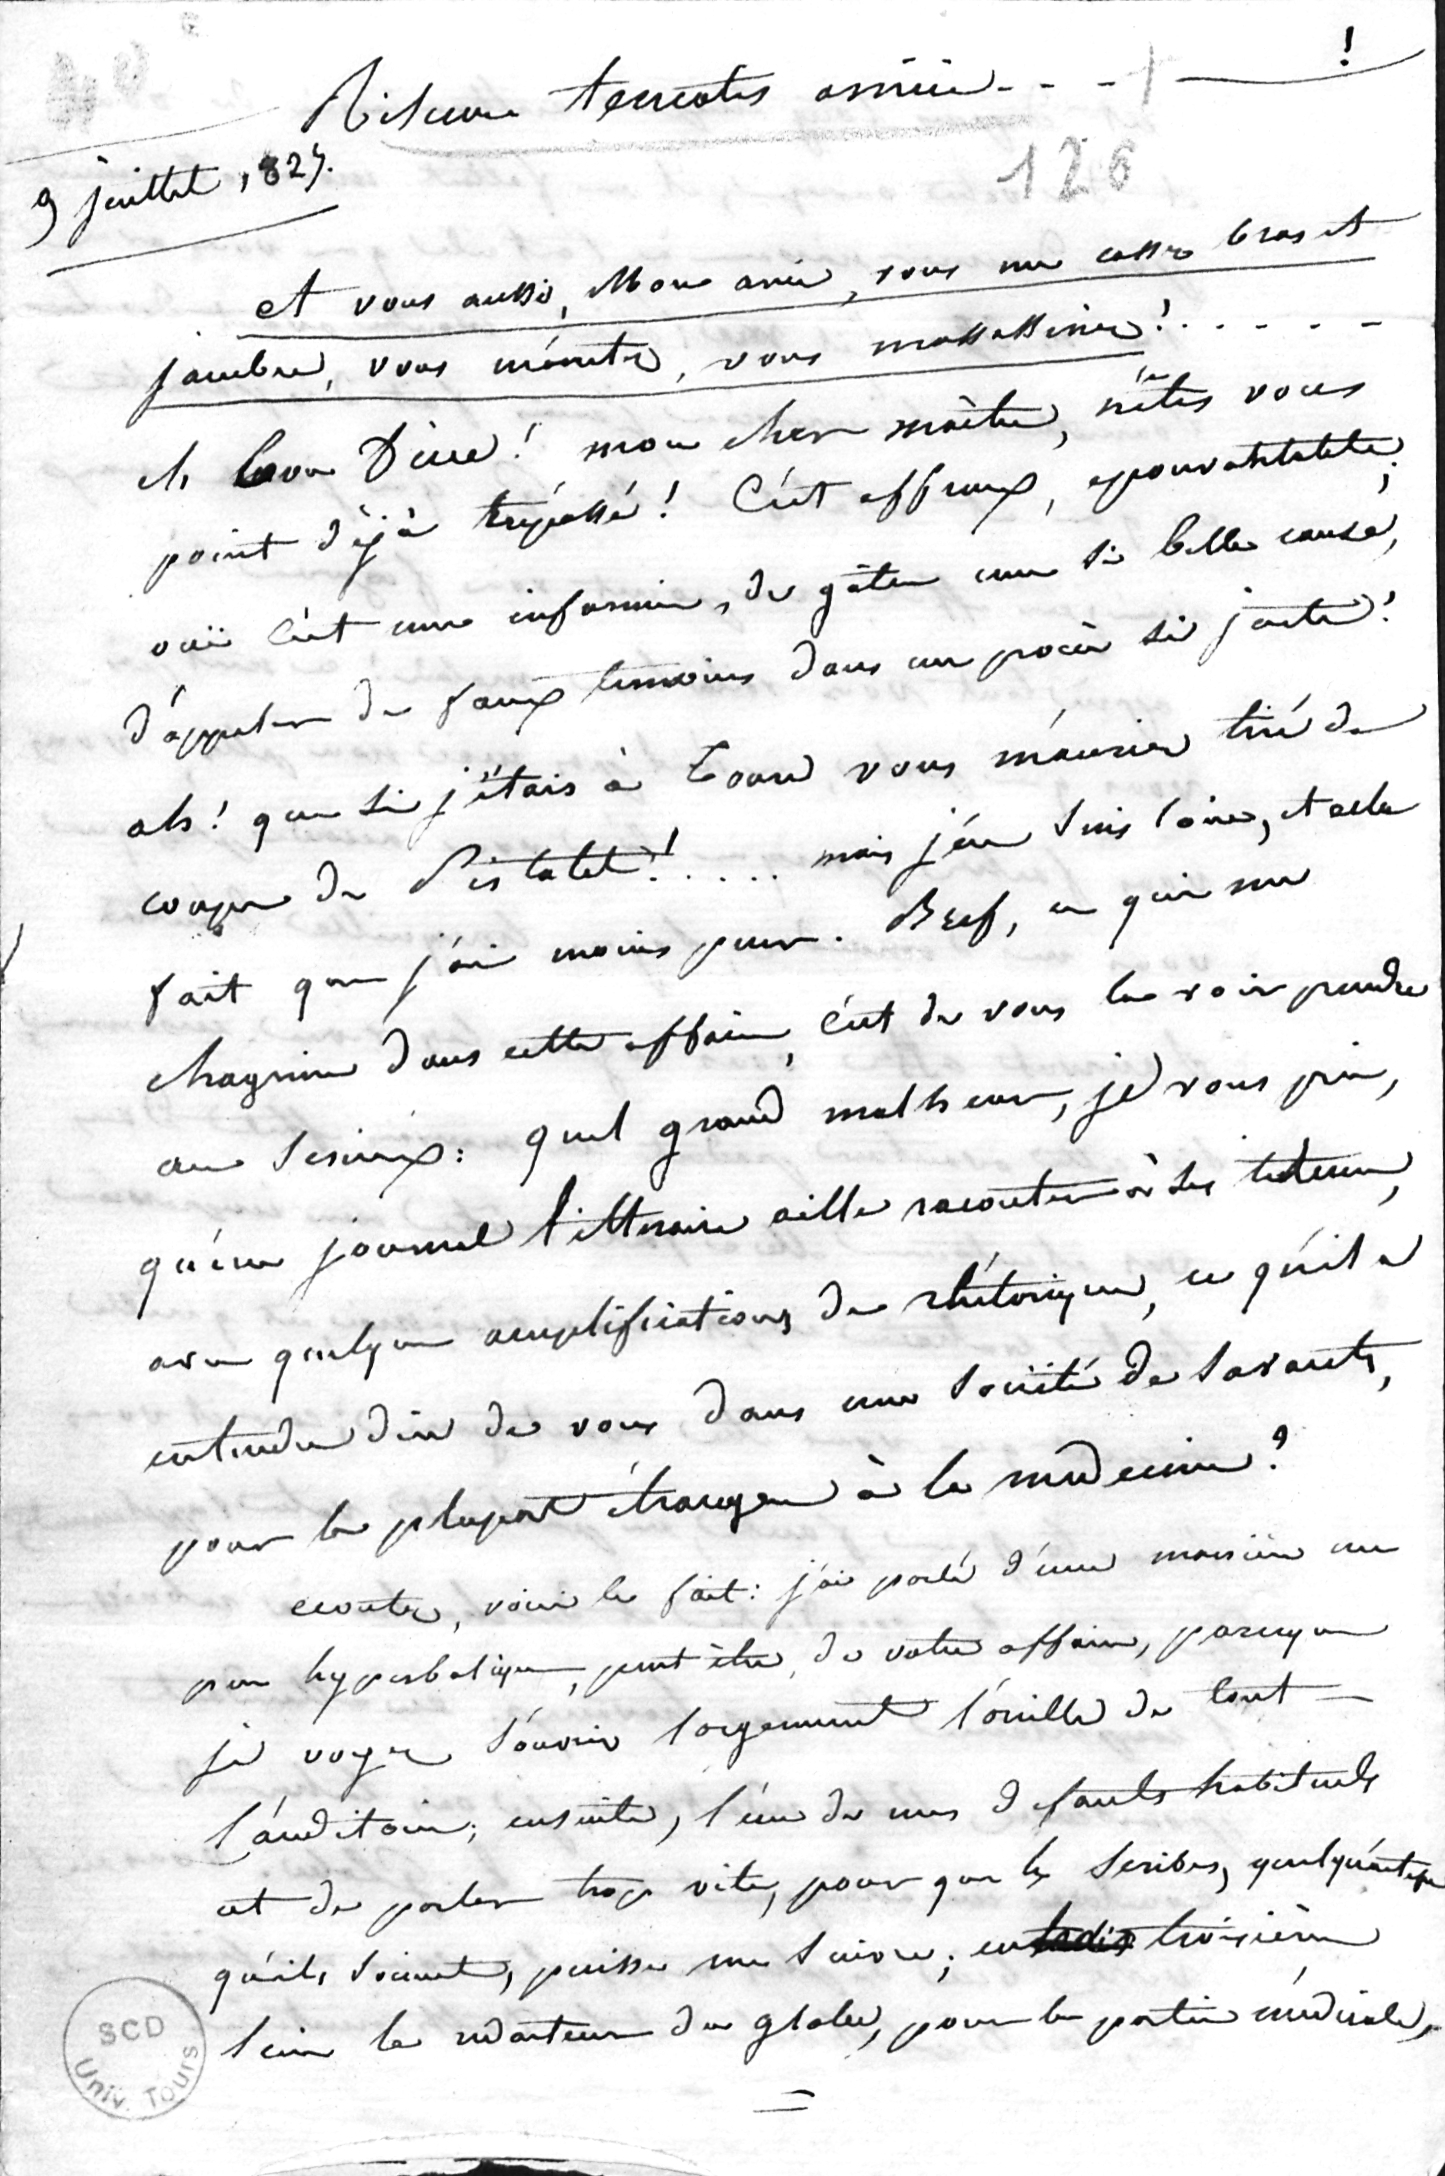 Risum teneatis amici - - - !
126
9 juillet 1827.
et vous aussi, Mon ami, vous me cassez bras et
jambes, vous m'éreintez, vous m'assassinez! . . . . .
eh bon Dieu! mon cher maitre, n'êtes vous
point déjà trépassé! C'est affreux, epouvantable;
oui c'est une infamie, de gâter une si belle cause,
d'appeler de faux temoins dans un procès si juste!
ah! que si j'étais à Tours vous m'auriez tiré de
coups de Pistolet! . . . . . mais j'en suis loin, et cela
fait que j'ai moins peur. Bref, ce qui me
chagrine dans cette affaire, c'est de vous la voir prendre
au serieux: quel grand malheur, je vous prie,
qu'un journal litteraire aille raconter à ses lecteurs,
avec quelques amplifications de rhétorique, ce qu'il a
entendu dire de vous dans une société de savants,
pour la plupart étrangers à la medecine?
ecoutez, voici le fait: j'ai parlé d'une maniere un
peu hyperbolique, peut être, de votre affaire, parceque
je voyais s'ouvrir largement l'oreille de tout
l'auditoire; ensuite, l'un de mes defauts habituels
est de parler trop vite, pour que les scribes, quelqu'antiques
qu'ils soient, puisse me suivre; en troisième
lieu le redacteur du globe, pour la partie médicale,
SCD
Univ. Tours